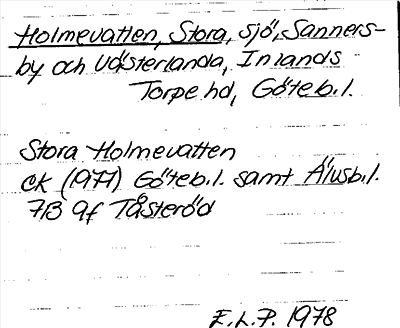 Holmevatten, Stora, sjö, Sanners-
by och Västerlanda, Inlands
Torpe hd, Göteb.l.
Stora Holmevatten
ek (1977) Göteb.l. samt Älvsb.l.
7B 9f Tåsteröd
E.L.P. 1978